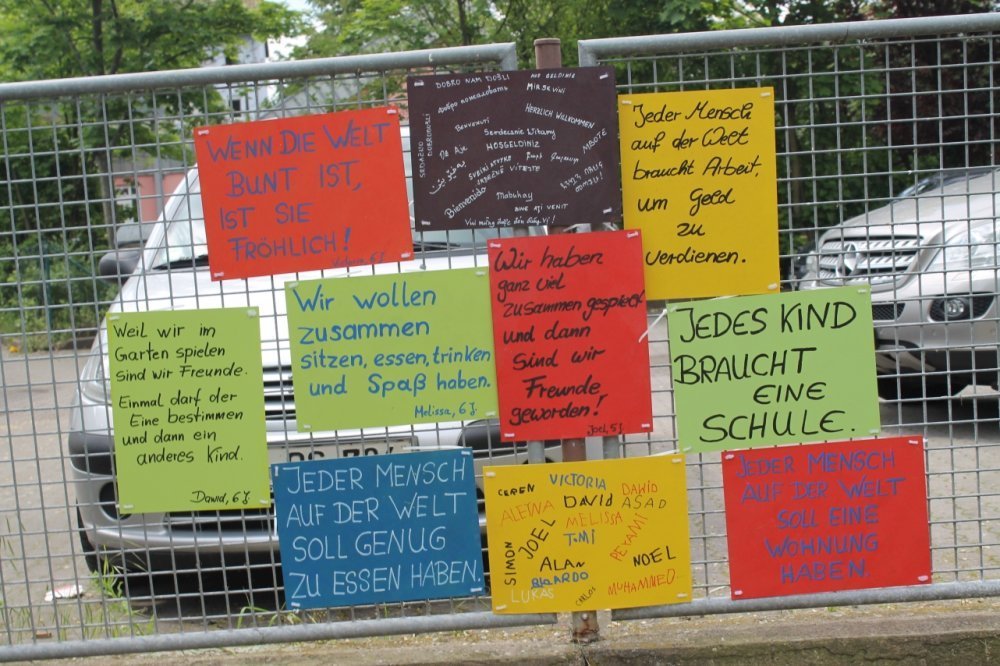 WENN DIE WELT
BUNT IST,
IST SIE
FRÖHLICH!
DOBRO NAM DOŠLI
Добро пожаловать
Benvenuti
Serdecznie Witamy
HOŞGELDİNİZ
HERZLICH WILLKOMMEN
MBOTE
Mabuhay
Bienvenido
BINE AȚI VENIT
Jeder Mensch
auf der Welt
braucht Arbeit,
um Geld
zu
verdienen.
Weil wir im
Garten spielen
sind wir Freunde.
Einmal darf der
Eine bestimmen
und dann ein
anderes Kind.
Dawid, 6 J.
Wir wollen
zusammen
sitzen, essen, trinken
und Spaß haben.
Melissa, 6 J.
Wir haben
ganz viel
zusammen gespielt
und dann
sind wir
Freunde
geworden!
Joel, 5 J.
JEDES KIND
BRAUCHT
EINE
SCHULE.
JEDER MENSCH
AUF DER WELT
SOLL GENUG
ZU ESSEN HABEN.
CEREN VICTORIA
ALEYNA DAVID DAWID
ASAD
JOEL MELISSA
TIMI
SIMON ALAN NOEL
RICARDO
LUKAS CARLOS MUHAMMED
JEDER MENSCH
AUF DER WELT
SOLL EINE
WOHNUNG
HABEN.